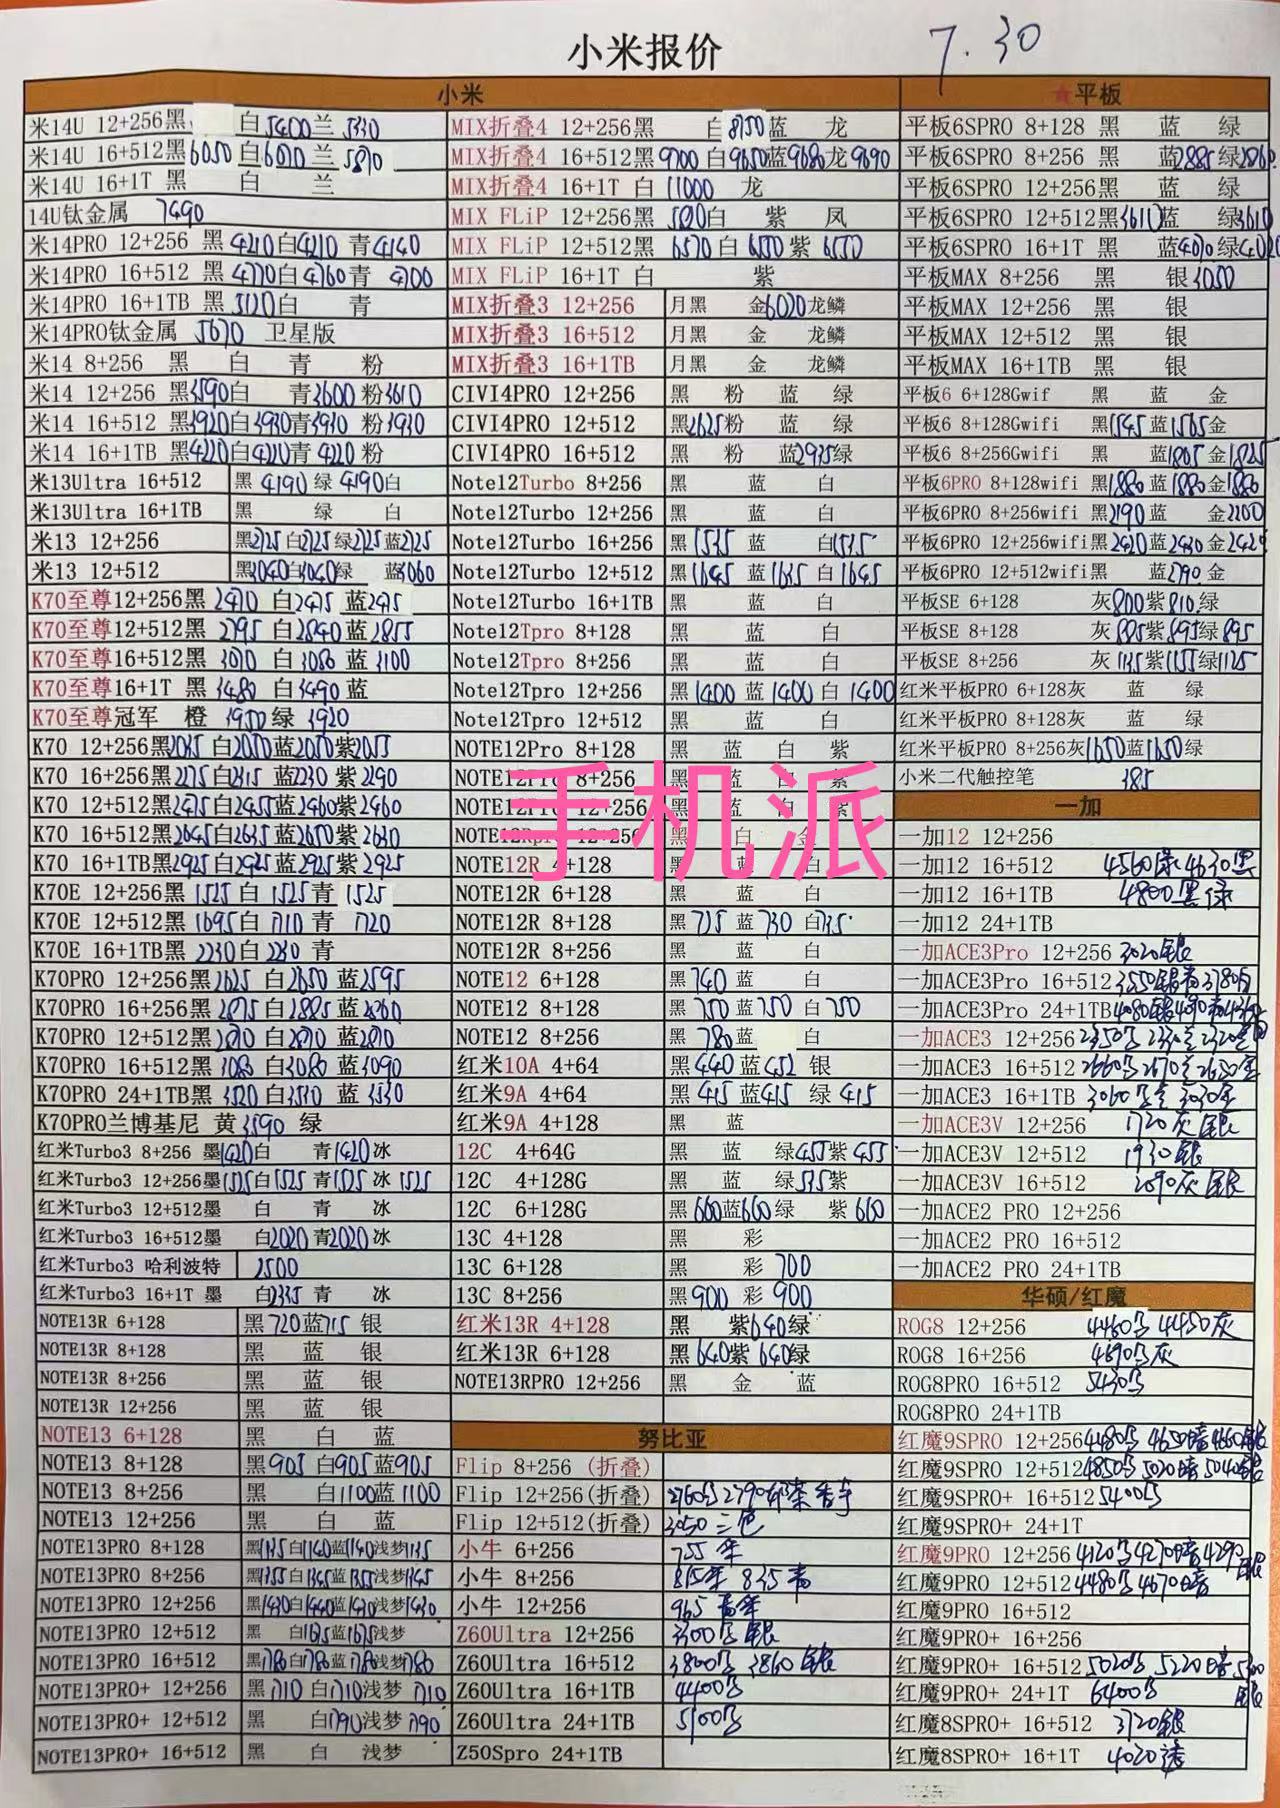 小米报价 7.30
小米
米14U 12+256黑 白5400兰 5330
米14U 16+512黑6050白6010兰 5870
米14U 16+1T 黑 白 兰
14U钛金属 7490
米14PRO 12+256 黑 4210白4210 青4140
米14PRO 16+512 黑 4770白4760青 4700
米14PRO 16+1TB 黑 5120白 青
米14PRO钛金属 5670 卫星版
米14 8+256 黑 白 青 粉
米14 12+256 黑3590白 青3600 粉3610
米14 16+512 黑3920白3930青3930 粉3930
米14 16+1TB 黑4220白4220青4220 粉
米13Ultra 16+512 黑 4190 绿 4190白
米13Ultra 16+1TB 黑 绿 白
米13 12+256 黑2725 白2725 绿2725 蓝2725
米13 12+512 黑3040白3040绿 蓝3060
K70至尊12+256黑 2470 白2475 蓝2475
K70至尊12+512黑 2795 白2840蓝2855
K70至尊16+512黑 3070 白3080 蓝3100
K70至尊16+1T 黑 3480 白3490蓝
K70至尊冠军 橙 3950绿 3920
K70 12+256黑2045 白2050蓝2050紫2055
K70 16+256黑2275白2315 蓝2230 紫2290
K70 12+512黑2475白2455蓝2460紫2460
K70 16+512黑2645白2635蓝2650紫2630
K70 16+1TB黑2925白2925蓝2925紫2925
K70E 12+256黑 1525白 1525青 1525
K70E 12+512黑 1695白 1710青 1720
K70E 16+1TB黑 2230白2230 青
K70PRO 12+256黑2625 白2650蓝2595
K70PRO 16+256黑2875白2885蓝2860
K70PRO 12+512黑2870白2870蓝2870
K70PRO 16+512黑3080 白3080 蓝3090
K70PRO 24+1TB黑 3520白3530 蓝 3530
K70PRO兰博基尼 黄3590 绿
红米Turbo3 8+256 墨1420白 青1420冰
红米Turbo3 12+256墨1525白1525 青1525 冰 1525
红米Turbo3 12+512墨 白 青 冰
红米Turbo3 16+512墨 白2020青2020冰
红米Turbo3 哈利波特 2500
红米Turbo3 16+1T 墨 白2335 青 冰
NOTE13R 6+128 黑720蓝715 银
NOTE13R 8+128 黑 蓝 银
NOTE13R 8+256 黑 蓝 银
NOTE13R 12+256 黑 蓝 银
NOTE13 6+128 黑 白 蓝
NOTE13 8+128 黑905 白905蓝905
NOTE13 8+256 黑 白1100蓝1100
NOTE13 12+256 黑 白 蓝
NOTE13PRO 8+128 黑1135白1140蓝1140浅梦1135
NOTE13PRO 8+256 黑1355白1345蓝1355浅梦1345
NOTE13PRO 12+256 黑1430白1440蓝1430浅梦1430
NOTE13PRO 12+512 黑 白1675蓝1675浅梦
NOTE13PRO 16+512 黑1780白1780蓝1780浅梦1780
NOTE13PRO+ 12+256 黑 1710 白1710浅梦 1710
NOTE13PRO+ 12+512 黑 白1790浅梦 1790
NOTE13PRO+ 16+512 黑 白 浅梦
MIX折叠4 12+256黑 白8750蓝 龙
MIX折叠4 16+512黑9700白9650蓝9680龙9690
MIX折叠4 16+1T 白 11000 龙
MIX FLiP 12+256黑 5810白 紫 凤
MIX FLiP 12+512黑 6570白 6550紫 6550
MIX FLiP 16+1T 白 紫
MIX折叠3 12+256 月黑 金6020龙鳞
MIX折叠3 16+512 月黑 金 龙鳞
MIX折叠3 16+1TB 月黑 金 龙鳞
CIVI4PRO 12+256 黑 粉 蓝 绿
CIVI4PRO 12+512 黑2625粉 蓝 绿
CIVI4PRO 16+512 黑 粉 蓝2975绿
Note12Turbo 8+256 黑 蓝 白
Note12Turbo 12+256 黑 蓝 白
Note12Turbo 16+256 黑1535 蓝 白1535
Note12Turbo 12+512 黑1645 蓝1635 白1645
Note12Turbo 16+1TB 黑 蓝 白
Note12Tpro 8+128 黑 蓝 白
Note12Tpro 8+256 黑 蓝 白
Note12Tpro 12+256 黑1400 蓝1400 白 1400
Note12Tpro 12+512 黑 蓝 白
NOTE12Pro 8+128 黑 蓝 白 紫
NOTE12Pro 8+256 黑 蓝 白 紫
NOTE12Pro 12+256 黑 蓝 白 紫
NOTE12Rpro 12+256 黑 白 金
NOTE12R 4+128 黑 蓝 白
NOTE12R 6+128 黑 蓝 白
NOTE12R 8+128 黑 735 蓝 730 白735
NOTE12R 8+256 黑 蓝 白
NOTE12 6+128 黑740 蓝 白
NOTE12 8+128 黑 750 蓝750 白750
NOTE12 8+256 黑 780蓝 白
红米10A 4+64 黑440蓝452 银
红米9A 4+64 黑 415 蓝415 绿 415
红米9A 4+128 黑 蓝
12C 4+64G 黑 蓝 绿455紫455
12C 4+128G 黑 蓝 绿535紫
12C 6+128G 黑660蓝660绿 紫660
13C 4+128 黑 彩
13C 6+128 黑 彩 700
13C 8+256 黑900 彩 900
红米13R 4+128 黑 紫640绿
红米13R 6+128 黑640紫640绿
NOTE13RPRO 12+256 黑 金 蓝
努比亚
Flip 8+256 (折叠)
Flip 12+256(折叠) 2760 2790
Flip 12+512(折叠) 3050 三色
小牛 6+256 755
小牛 8+256 815 835青
小牛 12+256 965
Z60Ultra 12+256 3300 银
Z60Ultra 16+512 3800 3860 银
Z60Ultra 16+1TB 4400
Z60Ultra 24+1TB 5100
Z50Spro 24+1TB
★平板
平板6SPRO 8+128 黑 蓝 绿
平板6SPRO 8+256 黑 蓝2885绿2860
平板6SPRO 12+256黑 蓝 绿
平板6SPRO 12+512黑3611蓝 绿3610
平板6SPRO 16+1T 黑 蓝4070绿
平板MAX 8+256 黑 银3050
平板MAX 12+256 黑 银
平板MAX 12+512 黑 银
平板MAX 16+1TB 黑 银
平板6 6+128Gwif 黑 蓝 金
平板6 8+128Gwifi 黑1545蓝1565金
平板6 8+256Gwifi 黑 蓝1805金1825
平板6PRO 8+128wifi 黑1880蓝1880金1880
平板6PRO 8+256wifi 黑2190蓝 金2200
平板6PRO 12+256wifi黑2420蓝2430金2420
平板6PRO 12+512wifi黑 蓝2790金
平板SE 6+128 灰800紫810绿
平板SE 8+128 灰885紫895绿895
平板SE 8+256 灰1135紫1155绿1125
红米平板PRO 6+128灰 蓝 绿
红米平板PRO 8+128灰 蓝 绿
红米平板PRO 8+256灰1650蓝1650绿
小米二代触控笔 385
一加
一加12 12+256
一加12 16+512 4560绿 4630黑
一加12 16+1TB 4800黑绿
一加12 24+1TB
一加ACE3Pro 12+256 3020银
一加ACE3Pro 16+512 3550银青3780白
一加ACE3Pro 24+1TB 4080银4090青
一加ACE3 12+256 2350 2330兰2320金
一加ACE3 16+512 2660 2670兰2630金
一加ACE3 16+1TB 3060 3030金
一加ACE3V 12+256 1720灰银
一加ACE3V 12+512 1930银
一加ACE3V 16+512 2090灰银
一加ACE2 PRO 12+256
一加ACE2 PRO 16+512
一加ACE2 PRO 24+1TB
华硕/红魔
ROG8 12+256 4460 4450灰
ROG8 16+256 4690 灰
ROG8PRO 16+512 5430
ROG8PRO 24+1TB
红魔9SPRO 12+256 4480 4650暗4660银
红魔9SPRO 12+512 4850 5020暗5040银
红魔9SPRO+ 16+512 5400
红魔9SPRO+ 24+1T
红魔9PRO 12+256 4120 4270暗4290银
红魔9PRO 12+512 4480 4670暗
红魔9PRO 16+512
红魔9PRO+ 16+256
红魔9PRO+ 16+512 5020 5220暗5300银
红魔9PRO+ 24+1T 6400
红魔8SPRO+ 16+512 3720银
红魔8SPRO+ 16+1T 4020透
手机派